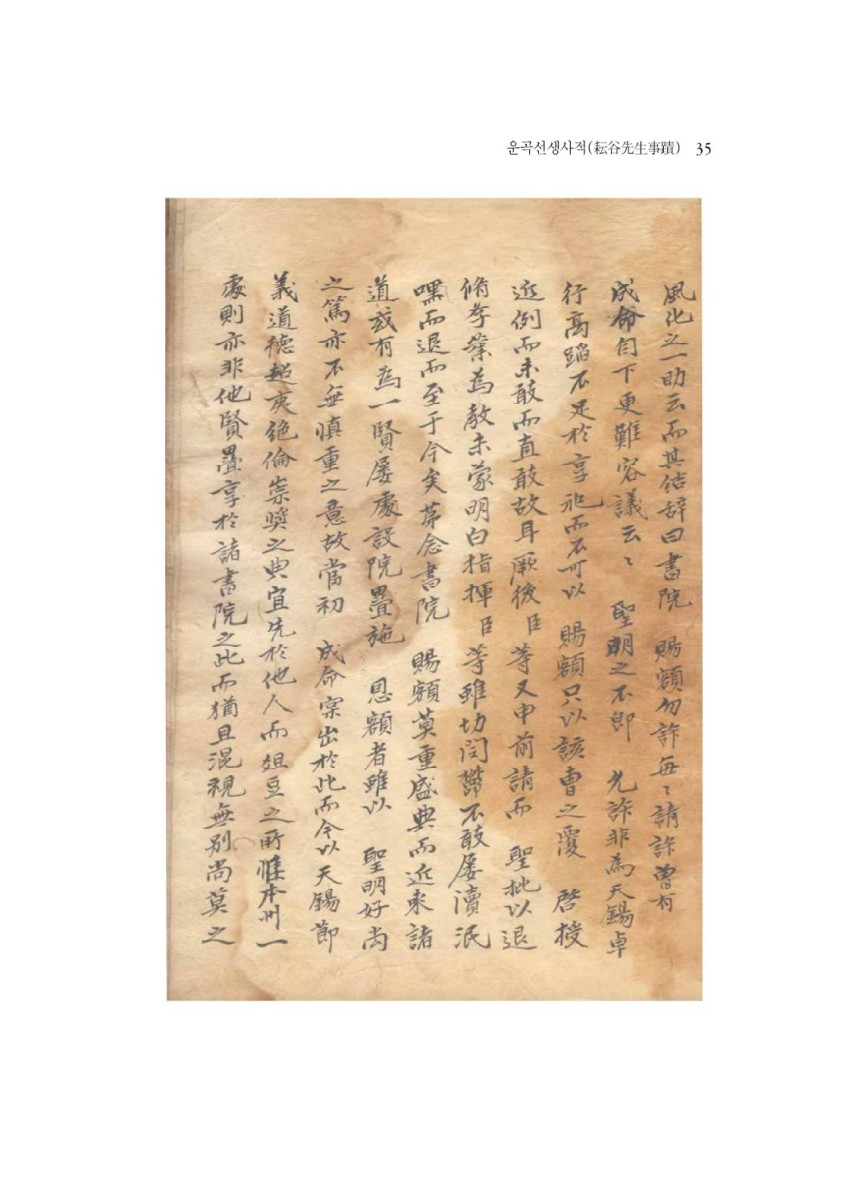 운곡선생사적(耘谷先生事蹟) 35
風化之一助云而其结辞曰書院 賜額勿許每〻請許曾有
成命自下更難容議云〻 聖明之不卽 允許非為天錫卓
行高蹈不足於享祀而不可以 賜額只以該曹之覆 啓援
近例而未敢而直敢故耳厥後臣等又申前請而 聖批以退
脩孝業為敎未蒙明白指揮臣等雖切悶欝不敢屡瀆泯
嘿而退而至于今矣茅念書院 賜額莫重盛典而近來諸
道或有為一賢屡處設院疊施 恩額者雖以 聖明好尚
之篤亦不無慎重之意故當初 成命寔出於此而今以天錫節
義道德超夾絶倫崇奬之典宜先於他人而俎豆之所惟本州一
處則亦非他賢疊享於諸書院之此而猶且混視無別尚莫之